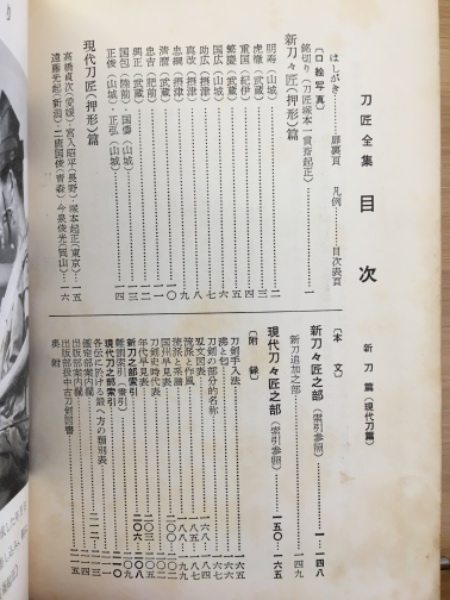 刀匠全集 目次
新刀篇（現代刀篇）
はしがき……扉裏頁 凡例……目次裏頁
〔口絵写真〕
銘切り（刀匠塚本一貫斎起正）……一
新刀々匠（押形）篇
明寿（山城）……二
虎徹（武蔵）……三
重国（紀伊）……四
繁慶（武蔵）……五
国広（山城）……六
助広（摂津）……七
真改（摂津）……八
忠綱（摂津）……九
清麿（武蔵）……一〇
忠吉（肥前）……一一
興正（武蔵）……一二
国包（陸前）・国儔（山城）
正俊（山城）・正弘（山城）……一四
現代刀匠（押形）篇
高橋貞次（愛媛）・宮入昭平（長野）・塚本起正（東京）……一五
遠藤光起（新潟）・二唐国俊（青森）・今泉俊光（岡山）……一六
〔本文〕
新刀々匠之部（索引参照）……一―一四八
新刀追加之部……一四九
現代刀々匠之部（索引参照）……一五〇―一六五
〔附録〕
刀剣手入法……一六五
沸と匂……一六六
刀剣の部分的名称……一六七
刄文図表……一六八―一八四
流派と作風……一八五―一八七
流派と系譜……一八八―一九九
国州早見表……二〇〇―二〇二
刀剣史時代表
年代早見表……二〇三―二〇五
新刀之部索引……二〇六―二〇八
難画索引（索引）……二〇九
現代刀之部索引……二一〇
各伝に於ける最へ方の類別表……二一一
鑑定部案内欄……二一二―
出版部案内欄
出版部扱中古刀剣図書……二一四
奥附……二一五